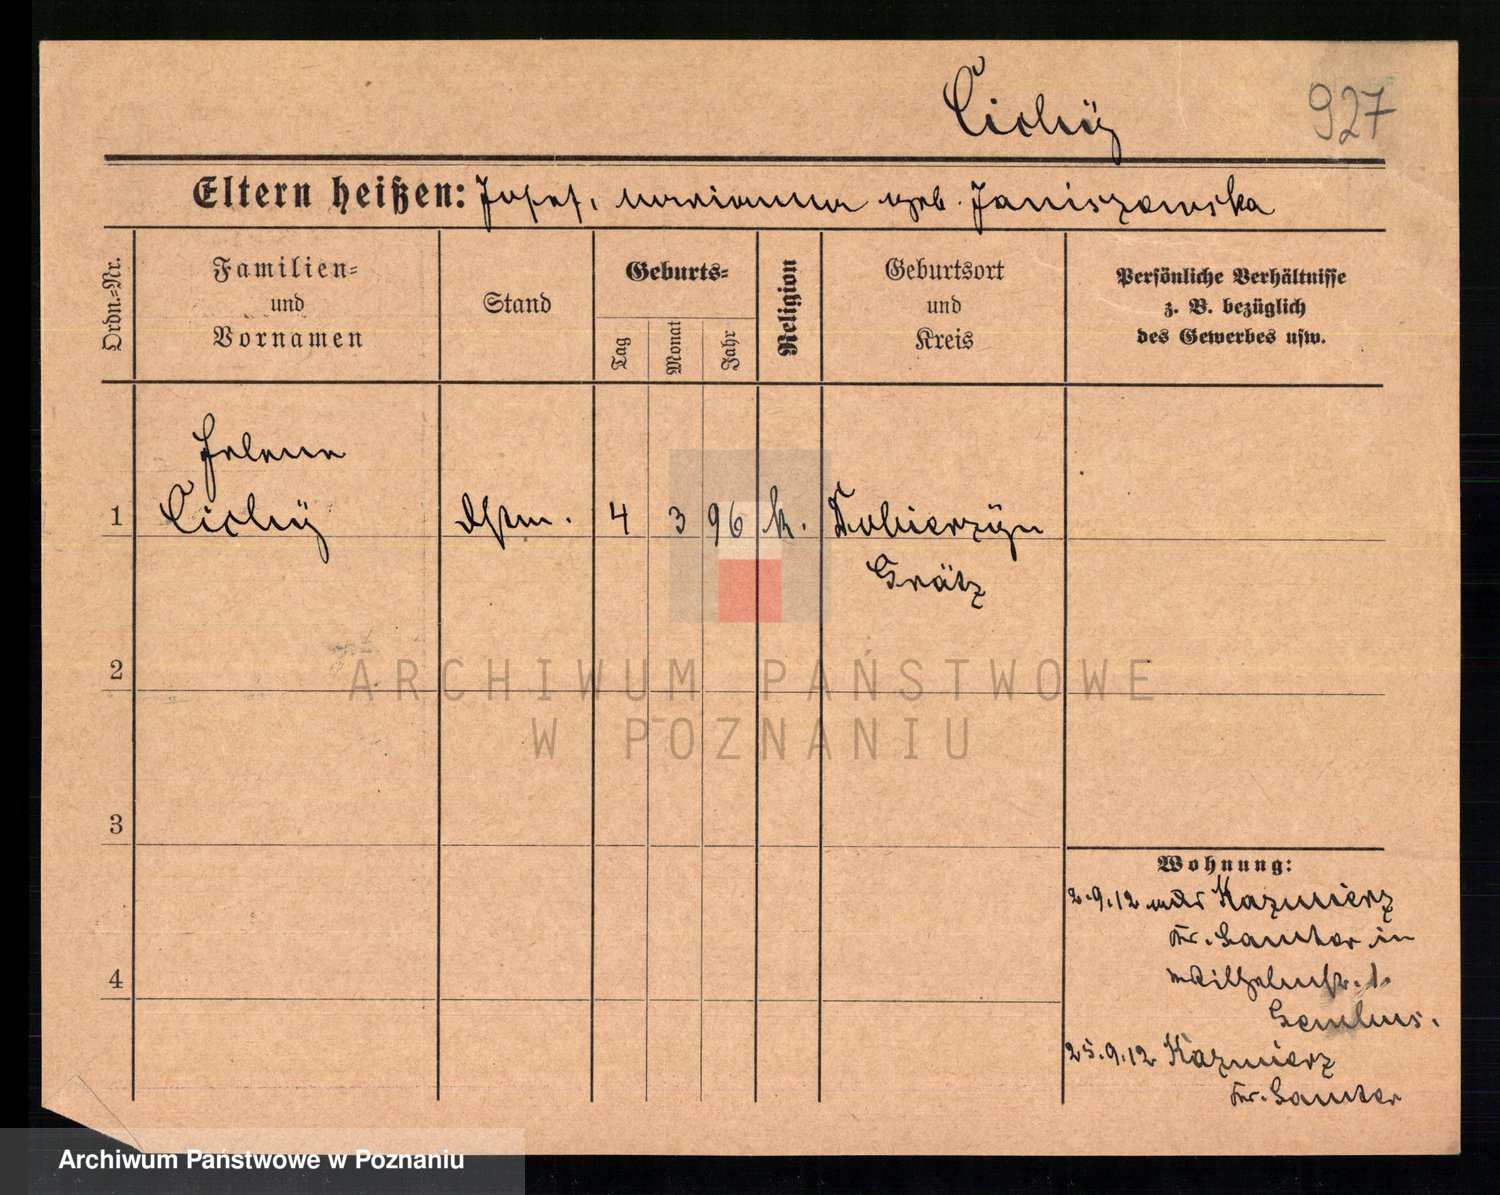 Cichÿ
927
Eltern heißen: Josef, Marianna geb. Janiszewska
Ordn.-Nr.
Familien-
und
Vornamen
Stand
Geburts-
Tag
Monat
Jahr
Religion
Geburtsort
und
Kreis
Persönliche Verhältnisse
z. B. bezüglich
des Gewerbes usw.
Helena
1 Cichÿ Dstm. 4 3 96 k. Dobierzÿn
Grätz
2
3
4
Wohnung:
2.9.12 aus Kazmierz
Kr. Samter in
Wilhelmstr. 1.
25.9.12 Kazmierz
Kr. Samter
ARCHIWUM PAŃSTWOWE
W POZNANIU
Archiwum Państwowe w Poznaniu